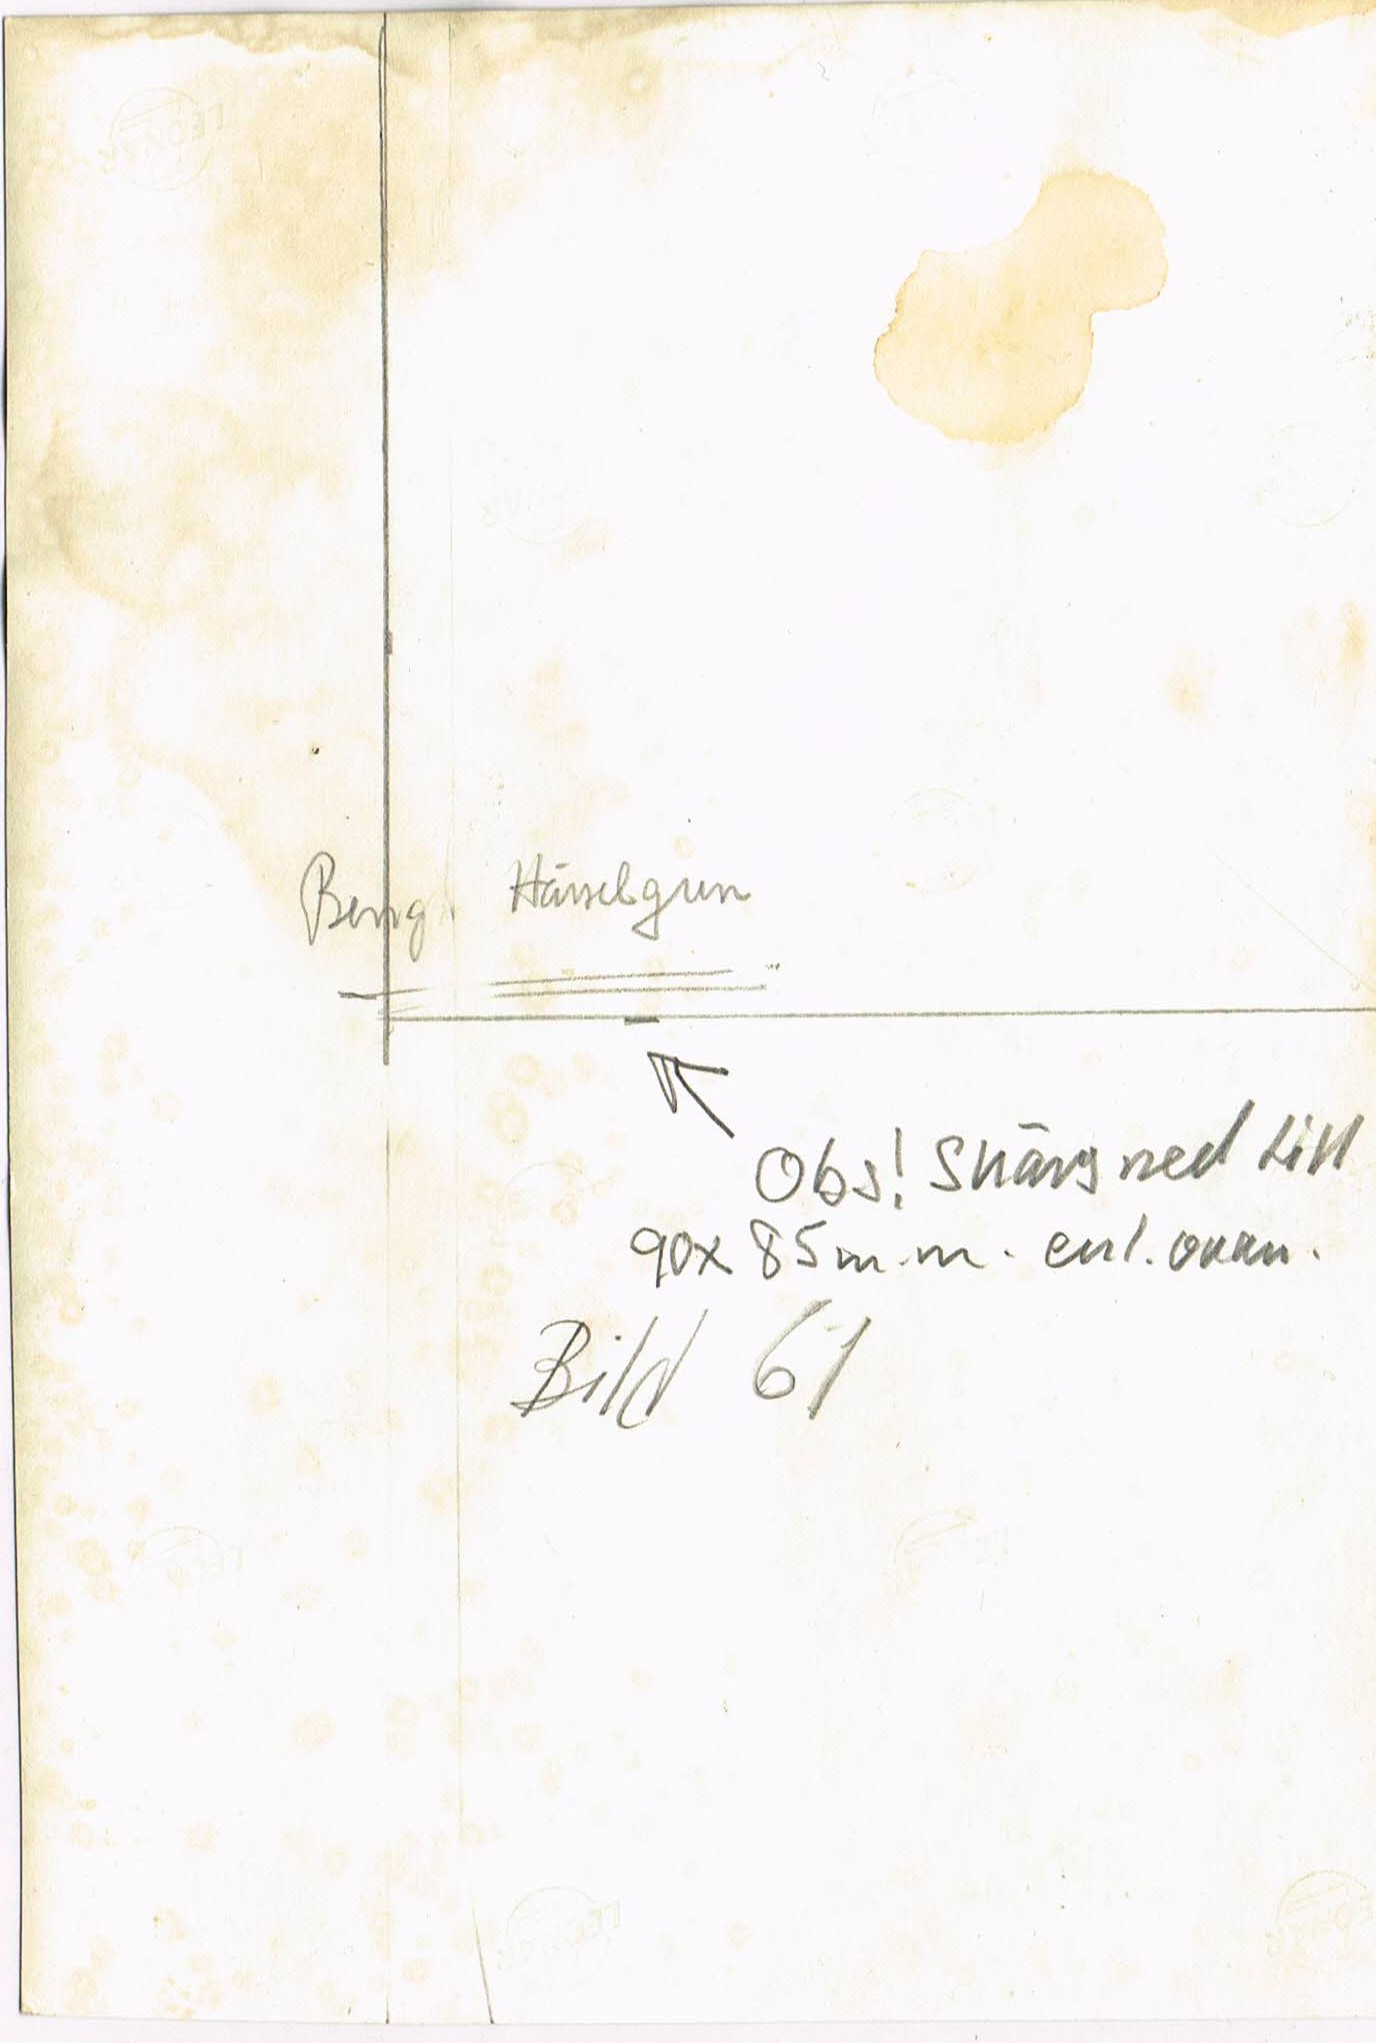 Beng. Hässelgren
Obs! Skäres ned till
90x85 m.m. enl. ovan.
Bild 61